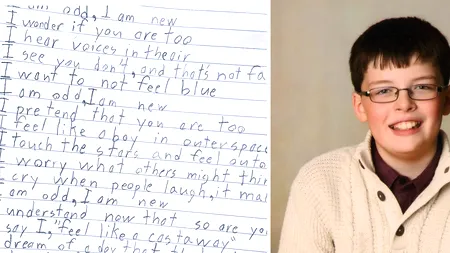 am odd, I am new
I wonder if you are too
I hear voices in the air
I see you don't, and that's not fa
I want to not feel blue
I am odd, I am new
I pretend that you are too
I feel like a boy in outerspace
I touch the stars and feel outo
I worry what others might thin
I cry when people laugh, it mak
am odd, I am new
understand now that so are you
say I, "feel like a castaway"
dream of a day that